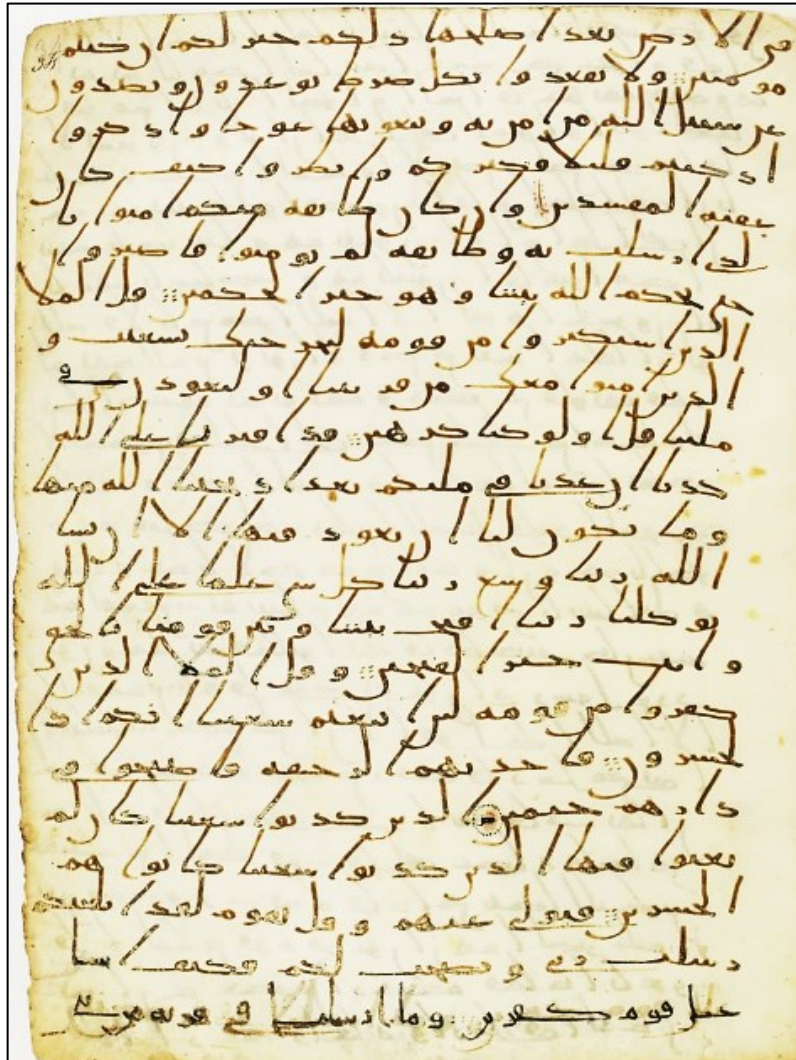 في الارض بعد اصلحها ذلكم خير لكم ان كنتم
مومنين ولا تقعدوا بكل صرط توعدون وتصدون
عن سبيل الله من امن به وتبغونها عوجا واذكروا
اذ كنتم قليلا فكثركم وانظروا كيف كان
عقبه المفسدين وان كان طائفه منكم امنوا با
لذي ارسلت به وطائفه لم يومنوا فاصبروا
حتى يحكم الله بيننا وهو خير الحكمين قل الملا
الذين استكبروا من قومه لنخرجنك يشعيب و
الذين امنوا معك من قريتنا او لتعودن في
ملتنا قل اولو كنا كرهين قد افترينا على الله
كذبا ان عدنا في ملتكم بعد اذ نجينا الله منها
وما يكون لنا ان نعود فيها الا ان يشا
الله ربنا وسع ربنا كل شي علما على الله
توكلنا ربنا افتح بيننا وبين قومنا بالحق
وانت خير الفتحين وقل الملا الذين
كفروا من قومه لئن اتبعتم شعيبا انكم اذا
لخسرون فاخذتهم الرجفه فاصبحوا في
دارهم جثمين الذين كذبوا شعيبا كان لم
يغنوا فيها الذين كذبوا شعيبا كانوا هم
الخسرين فتولى عنهم وقل يقوم لقد ابلغتكم
رسلت ربي ونصحت لكم فكيف اسا
على قوم كفرين وما ارسلنا في قريه من نبي